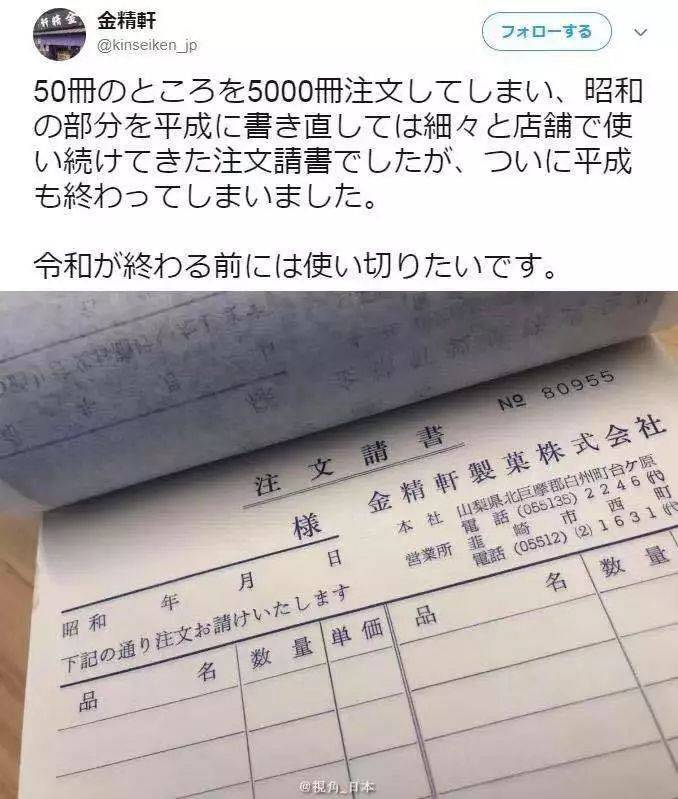 金精軒
@kinseiken_jp
フォローする
50冊のところを5000冊注文してしまい、昭和
の部分を平成に書き直しては細々と店舗で使
い続けてきた注文請書でしたが、ついに平成
も終わってしまいました。
令和が終わる前には使い切りたいです。
№ 80955
注文請書
様
金精軒製菓株式会社
本社 山梨県北巨摩郡白州町台ケ原
電話(055135)2246㈹
営業所 韮崎市西町
電話(05512)(2)1631㈹
昭和 年 月 日
下記の通り注文お請けいたします
品名 数量 単価 品名 数量
@視角_日本